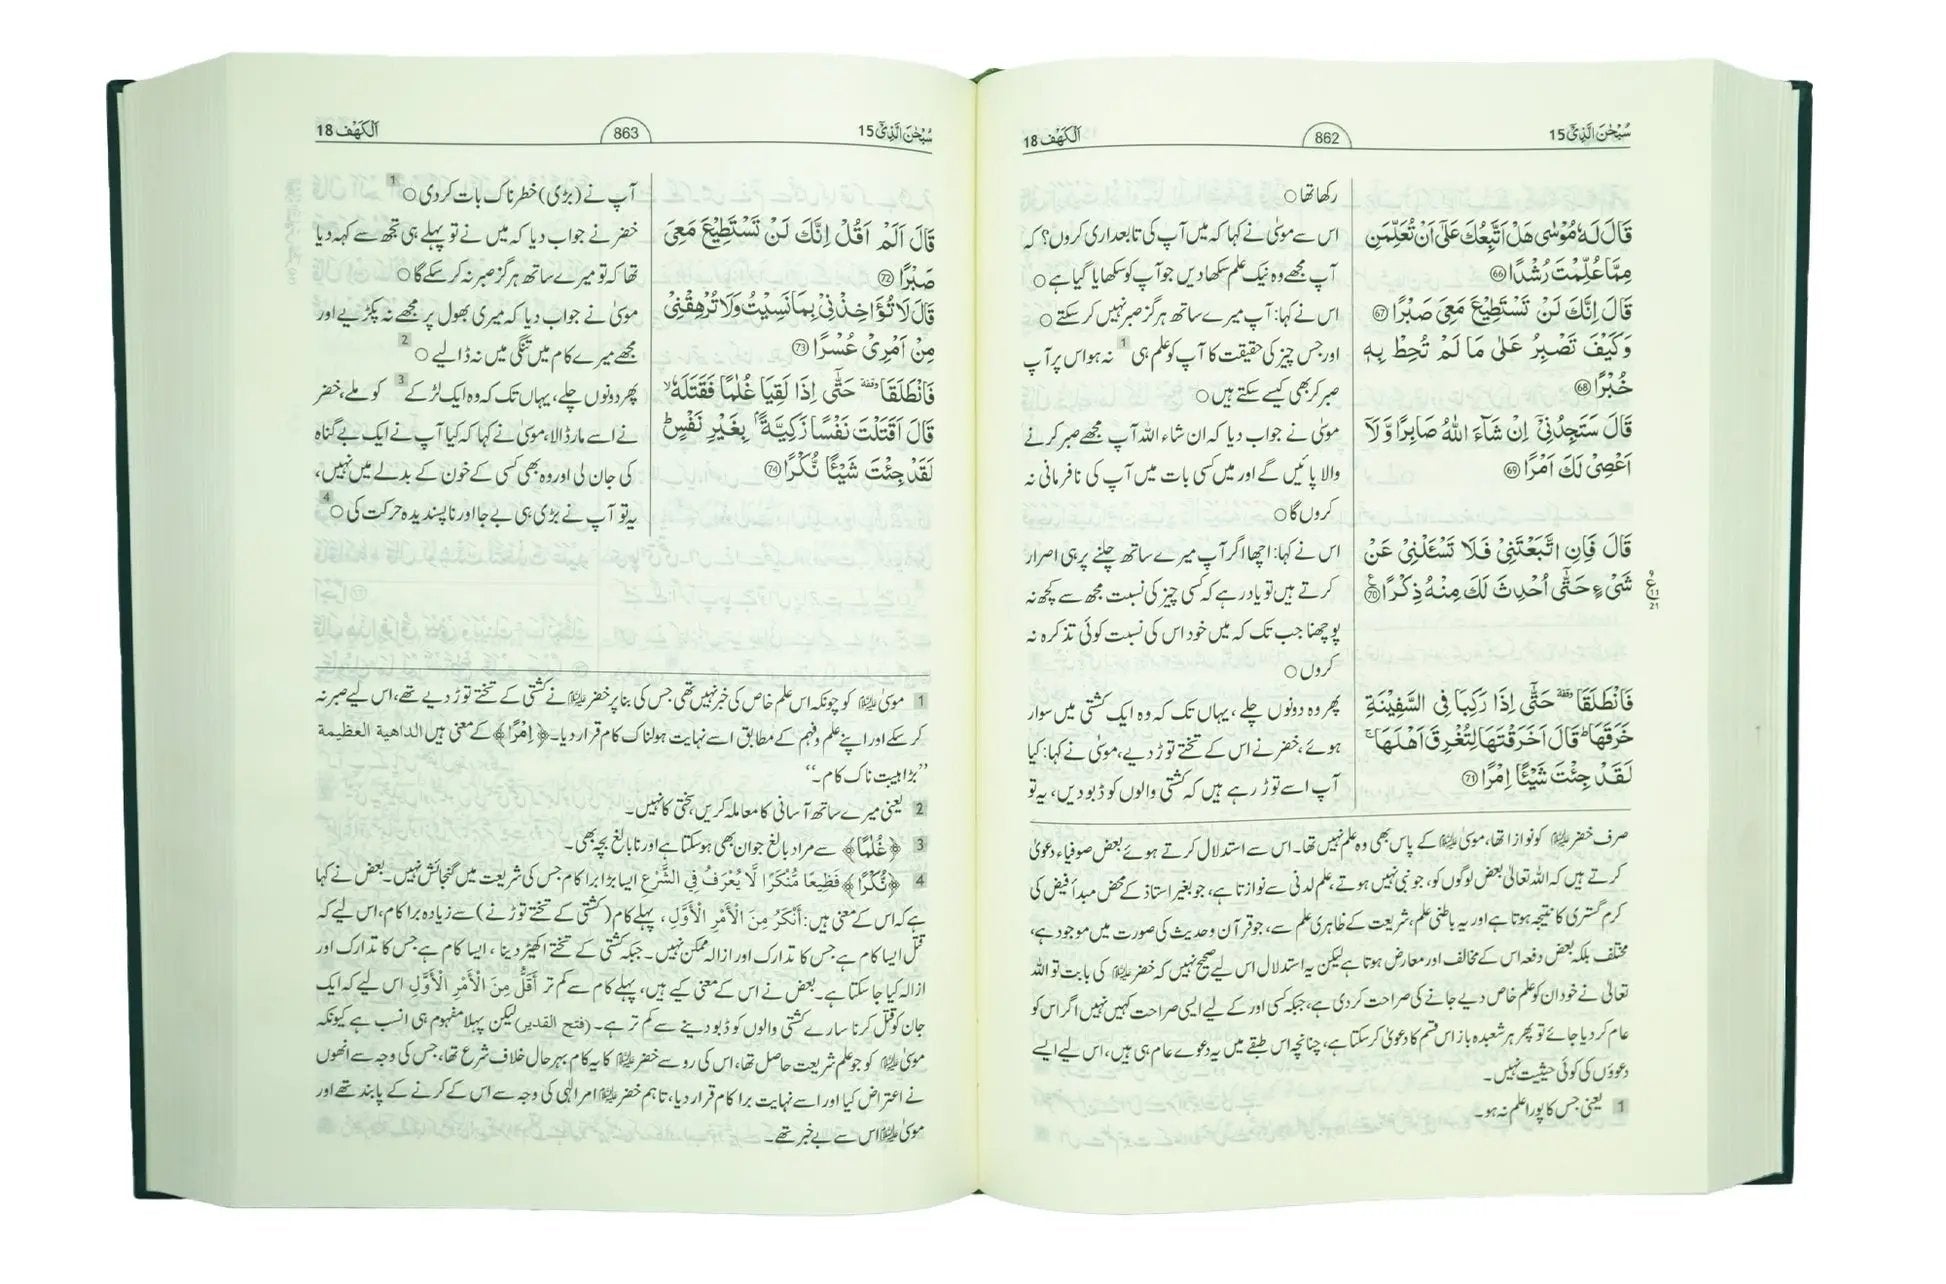 سُبْحٰنَ الَّذِيْۤ 15
862
اَلْكَهْف 18
قَالَ لَهٗ مُوْسٰى هَلْ اَتَّبِعُكَ عَلٰۤى اَنْ تُعَلِّمَنِ
مِمَّا عُلِّمْتَ رُشْدًا ﴿66﴾
قَالَ اِنَّكَ لَنْ تَسْتَطِيْعَ مَعِيَ صَبْرًا ﴿67﴾
وَكَيْفَ تَصْبِرُ عَلٰى مَا لَمْ تُحِطْ بِهٖ
خُبْرًا ﴿68﴾
قَالَ سَتَجِدُنِيْۤ اِنْ شَآءَ اللّٰهُ صَابِرًا وَّلَاۤ
اَعْصِيْ لَكَ اَمْرًا ﴿69﴾
قَالَ فَاِنِ اتَّبَعْتَنِيْ فَلَا تَسْـَٔلْنِيْ عَنْ
شَيْءٍ حَتّٰۤى اُحْدِثَ لَكَ مِنْهُ ذِكْرًا ﴿70﴾
فَانْطَلَقَا ۥ حَتّٰۤى اِذَا رَكِبَا فِي السَّفِيْنَةِ
خَرَقَهَا ؕ قَالَ اَخَرَقْتَهَا لِتُغْرِقَ اَهْلَهَا ۚ
لَقَدْ جِئْتَ شَيْـًٔا اِمْرًا ﴿71﴾
رکھا تھا ○
اس سے موسیٰ نے کہا کہ میں آپ کی تابعداری کروں؟ کہ
آپ مجھے وہ نیک علم سکھا دیں جو آپ کو سکھایا گیا ہے ○
اس نے کہا: آپ میرے ساتھ ہرگز صبر نہیں کر سکتے ○
اور جس چیز کی حقیقت کا آپ کو علم ہی 1 نہ ہو اس پر آپ
صبر کر بھی کیسے سکتے ہیں ○
موسیٰ نے جواب دیا کہ ان شاء اللہ آپ مجھے صبر کرنے
والا پائیں گے اور میں کسی بات میں آپ کی نافرمانی نہ
کروں گا ○
اس نے کہا: اچھا اگر آپ میرے ساتھ چلنے پر ہی اصرار
کرتے ہیں تو یاد رہے کہ کسی چیز کی نسبت مجھ سے کچھ نہ
پوچھنا جب تک کہ میں خود اس کی نسبت کوئی تذکرہ نہ
کروں ○
پھر وہ دونوں چلے، یہاں تک کہ وہ ایک کشتی میں سوار
ہوئے، خضر نے اس کے تختے توڑ دیے، موسیٰ نے کہا: کیا
آپ اسے توڑ رہے ہیں کہ کشتی والوں کو ڈبو دیں، یہ تو
صرف خضر علیہ السلام کو نوازا تھا، موسیٰ علیہ السلام کے پاس بھی وہ علم نہیں تھا۔ اس سے استدلال کرتے ہوئے بعض صوفیاء دعویٰ
کرتے ہیں کہ اللہ تعالیٰ بعض لوگوں کو، جو نبی نہیں ہوتے، علم لدنی سے نوازتا ہے، جو بغیر استاذ کے محض مبدأ فیض کی
کرم گستری کا نتیجہ ہوتا ہے اور یہ باطنی علم، شریعت کے ظاہری علم سے، جو قرآن و حدیث کی صورت میں موجود ہے،
مختلف بلکہ بعض دفعہ اس کے مخالف اور معارض ہوتا ہے لیکن یہ استدلال اس لیے صحیح نہیں کہ خضر علیہ السلام کی بابت تو اللہ
تعالیٰ نے خود ان کو علم خاص دیے جانے کی صراحت کر دی ہے، جبکہ کسی اور کے لیے ایسی صراحت کہیں نہیں اگر اس کو
عام کر دیا جائے تو پھر ہر شعبدہ باز اس قسم کا دعویٰ کر سکتا ہے، چنانچہ اس طبقے میں یہ دعوے عام ہی ہیں، اس لیے ایسے
دعوؤں کی کوئی حیثیت نہیں۔
1 یعنی جس کا پورا علم نہ ہو۔
سُبْحٰنَ الَّذِيْۤ 15
863
اَلْكَهْف 18
قَالَ اَلَمْ اَقُلْ اِنَّكَ لَنْ تَسْتَطِيْعَ مَعِيَ
صَبْرًا ﴿72﴾
قَالَ لَا تُؤَاخِذْنِيْ بِمَا نَسِيْتُ وَلَا تُرْهِقْنِيْ
مِنْ اَمْرِيْ عُسْرًا ﴿73﴾
فَانْطَلَقَا ۥ حَتّٰۤى اِذَا لَقِيَا غُلٰمًا فَقَتَلَهٗ ۙ
قَالَ اَقَتَلْتَ نَفْسًا زَكِيَّةً ۢ بِغَيْرِ نَفْسٍ ؕ
لَقَدْ جِئْتَ شَيْـًٔا نُّكْرًا ﴿74﴾
آپ نے (بڑی) خطرناک بات کر دی ○ 1
خضر نے جواب دیا کہ میں نے تو پہلے ہی تجھ سے کہہ دیا
تھا کہ تو میرے ساتھ ہرگز صبر نہ کر سکے گا ○
موسیٰ نے جواب دیا کہ میری بھول پر مجھے نہ پکڑیے اور
مجھے میرے کام میں تنگی میں نہ ڈالیے ○ 2
پھر دونوں چلے، یہاں تک کہ وہ ایک لڑکے 3 کو ملے، خضر
نے اسے مار ڈالا، موسیٰ نے کہا کہ کیا آپ نے ایک بے گناہ
کی جان لی اور وہ بھی کسی کے خون کے بدلے میں نہیں،
یہ تو آپ نے بڑی ہی بے جا اور ناپسندیدہ حرکت کی ○ 4
1 موسیٰ علیہ السلام کو چونکہ اس علم خاص کی خبر نہیں تھی جس کی بنا پر خضر علیہ السلام نے کشتی کے تختے توڑ دیے تھے، اس لیے صبر نہ
کر سکے اور اپنے علم و فہم کے مطابق اسے نہایت ہولناک کام قرار دیا۔ ﴿اِمْرًا﴾ کے معنی ہیں الداهية العظيمة
’’بڑا ہیبت ناک کام۔‘‘
2 یعنی میرے ساتھ آسانی کا معاملہ کریں، سختی کا نہیں۔
3 ﴿غُلٰمًا﴾ سے مراد بالغ جوان بھی ہو سکتا ہے اور نابالغ بچہ بھی۔
4 ﴿نُكْرًا﴾ فَظِيعًا مُّنْكَرًا لَّا يُعْرَفُ فِي الشَّرْعِ ایسا بڑا برا کام جس کی شریعت میں گنجائش نہیں۔ بعض نے کہا
ہے کہ اس کے معنی ہیں: أَنْكَرُ مِنَ الْأَمْرِ الْأَوَّلِ، پہلے کام (کشتی کے تختے توڑنے) سے زیادہ برا کام، اس لیے کہ
قتل ایسا کام ہے جس کا تدارک اور ازالہ ممکن نہیں۔ جبکہ کشتی کے تختے اکھیڑ دینا، ایسا کام ہے جس کا تدارک اور
ازالہ کیا جا سکتا ہے۔ بعض نے اس کے معنی کیے ہیں، پہلے کام سے کم تر أَقَلُّ مِنَ الْأَمْرِ الْأَوَّلِ اس لیے کہ ایک
جان کو قتل کرنا سارے کشتی والوں کو ڈبو دینے سے کم تر ہے۔ (فتح القدير) لیکن پہلا مفہوم ہی انسب ہے کیونکہ
موسیٰ علیہ السلام کو جو علم شریعت حاصل تھا، اس کی رو سے خضر علیہ السلام کا یہ کام بہر حال خلاف شرع تھا، جس کی وجہ سے انھوں
نے اعتراض کیا اور اسے نہایت برا کام قرار دیا، تاہم خضر علیہ السلام امر الٰہی کی وجہ سے اس کے کرنے کے پابند تھے اور
موسیٰ علیہ السلام اس سے بے خبر تھے۔